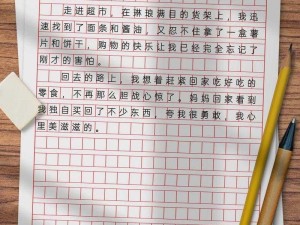 走进超市，在琳琅满目的货架上，我迅
速找到了面条和酱油，又忍不住拿了一盒薯
片和饼干，购物的快乐让我已经完全忘记了
刚才的害怕。
回去的路上，我想着赶紧回家吃好吃的
零食，不再那么胆战心惊了。妈妈回家看到
我独自买回了不少东西，夸我很勇敢，我心
里美滋滋的。